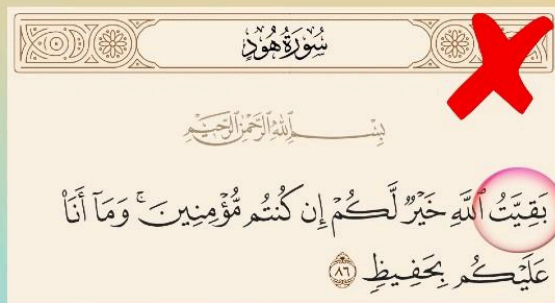 سُورَةُ هُودٍ
بِسْمِ ٱللَّهِ ٱلرَّحْمَٰنِ ٱلرَّحِيمِ
بَقِيَّتُ ٱللَّهِ خَيْرٌ لَّكُمْ إِن كُنتُم مُّؤْمِنِينَ ۚ وَمَآ أَنَا۠
عَلَيْكُم بِحَفِيظٍ ٨٦